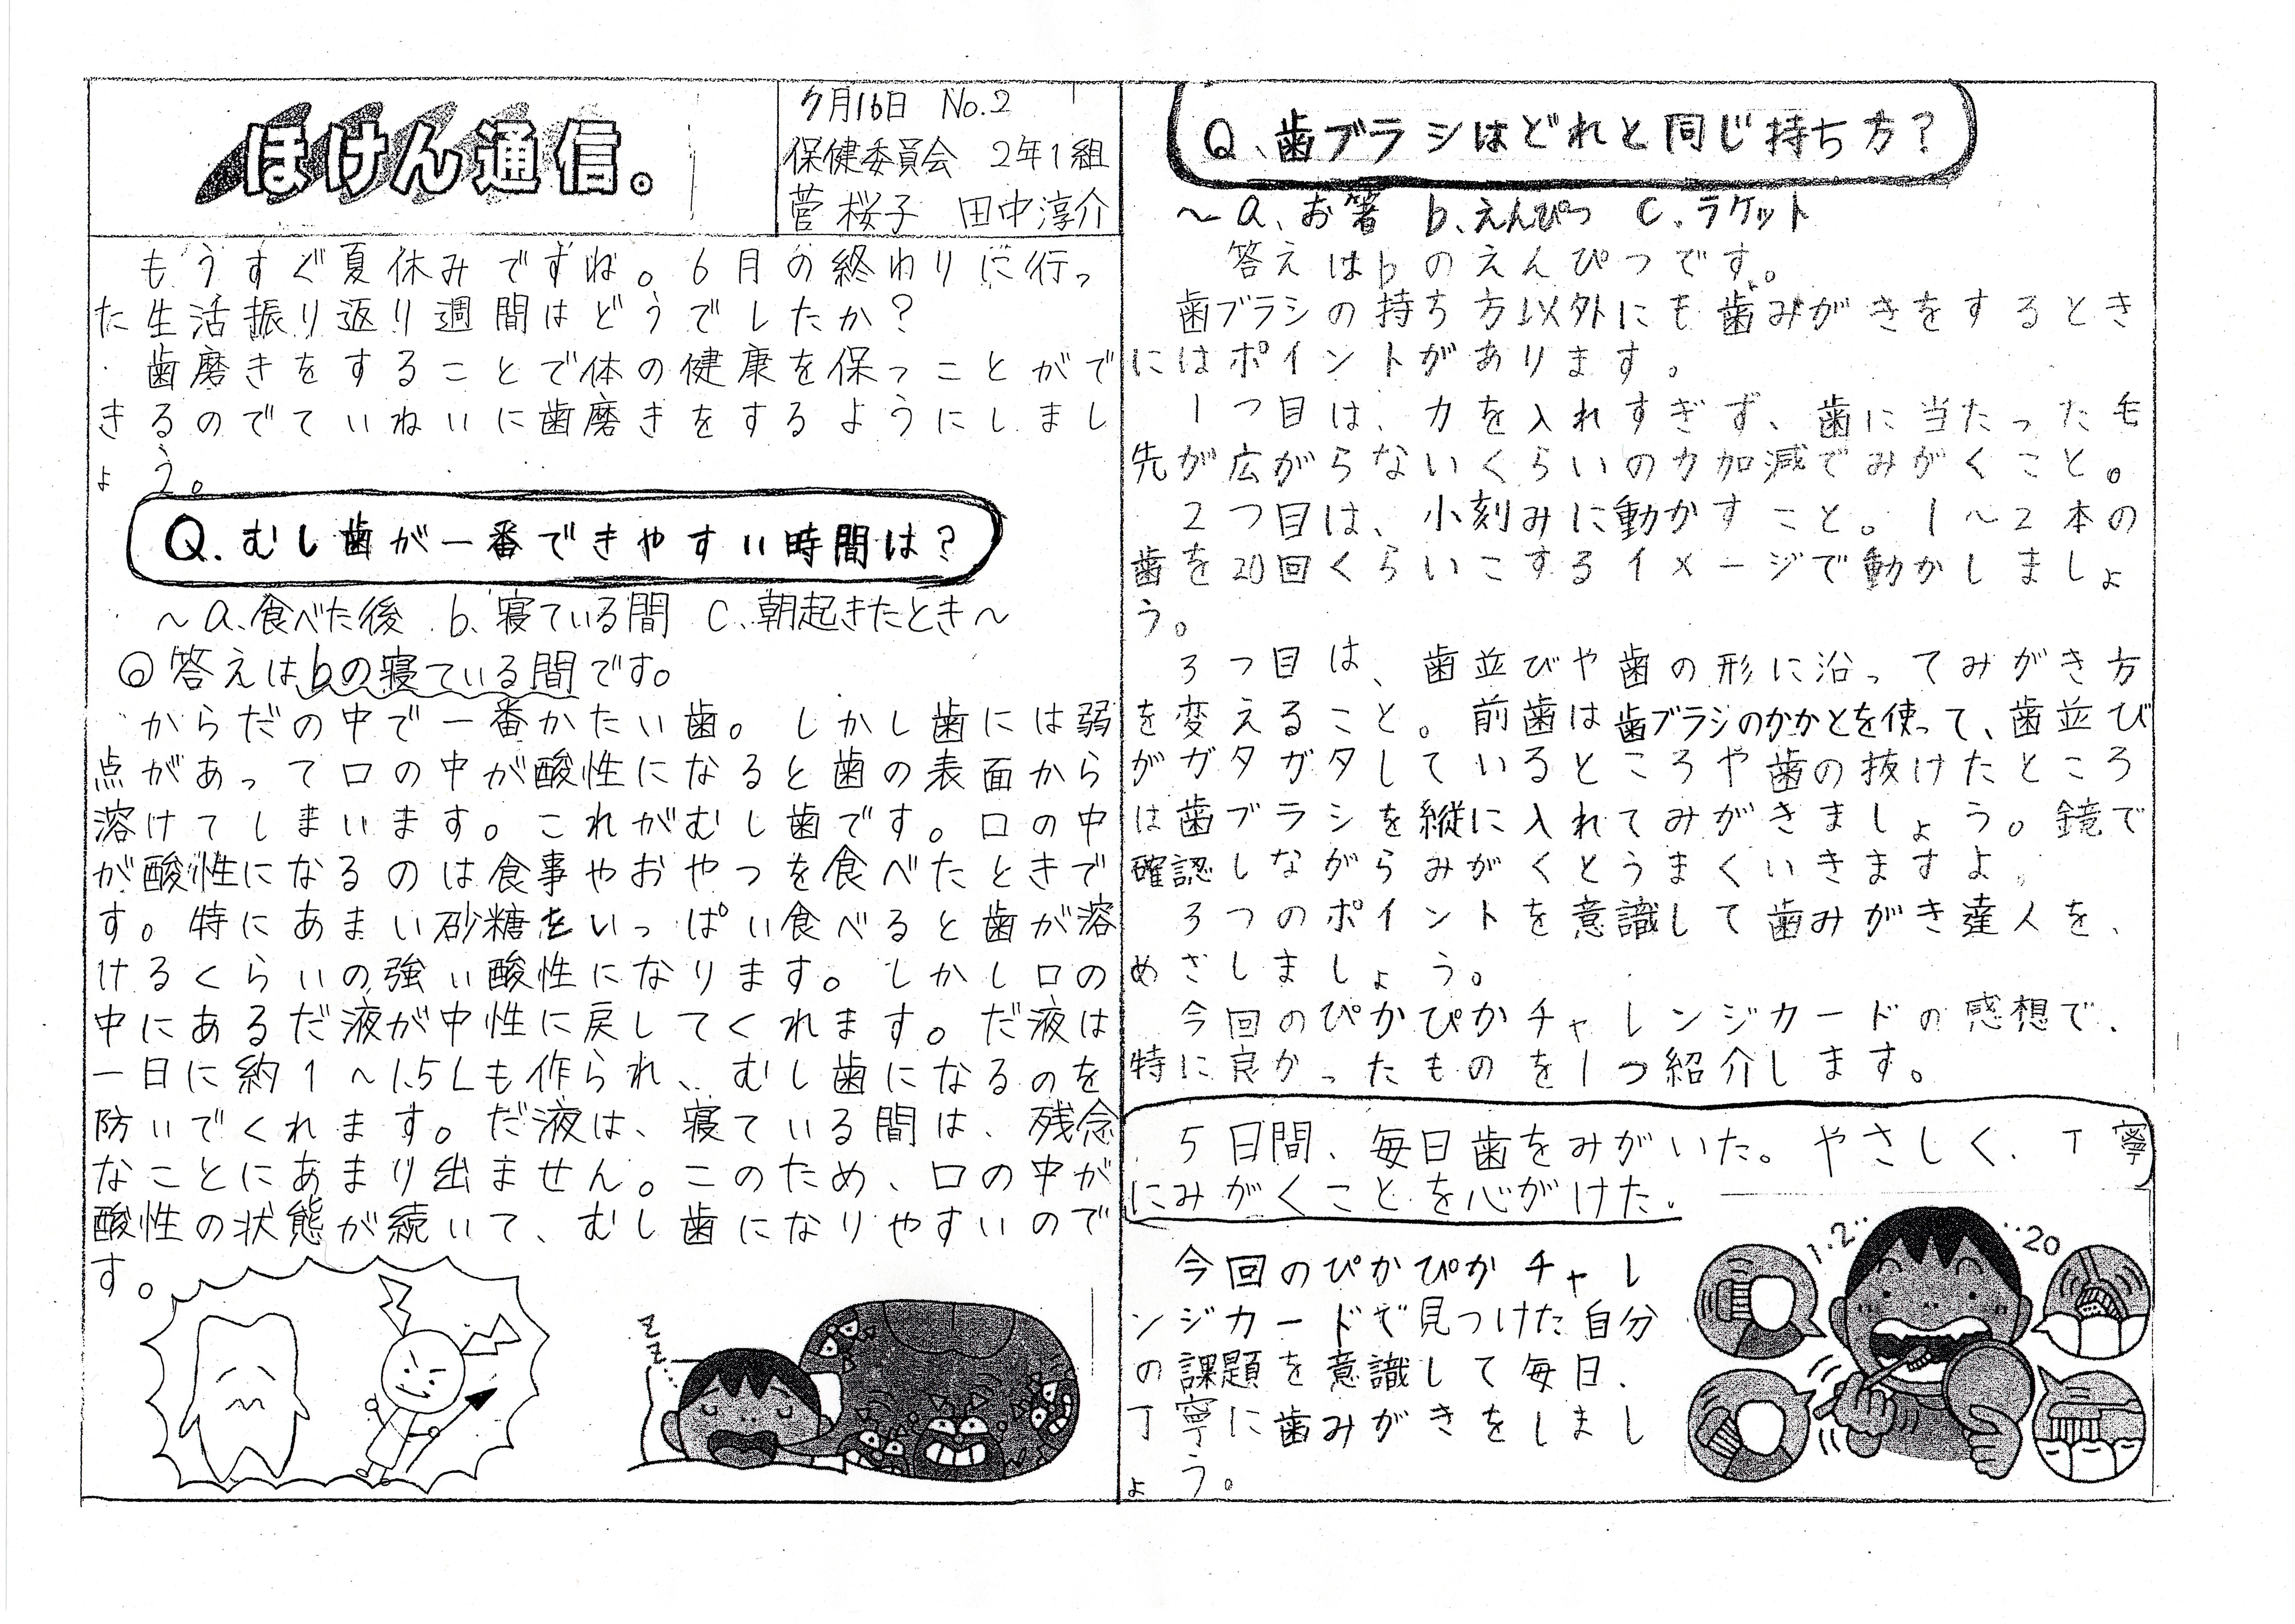 ほけん通信。
7月16日 No.2
保健委員会 2年1組
菅 桜子 田中淳介
もうすぐ夏休みですね。6月の終わりに行っ
た生活振り返り週間はどうでしたか?
歯磨きをすることで体の健康を保つことがで
きるのでていねいに歯磨きをするようにしまし
ょう。
Q.むし歯が一番できやすい時間は?
~a.食べた後 b.寝ている間 C.朝起きたとき~
◎答えはbの寝ている間です。
からだの中で一番かたい歯。しかし歯には弱
点があって口の中が酸性になると歯の表面から
溶けてしまいます。これがむし歯です。口の中
が酸性になるのは食事やおやつを食べたときで
す。特にあまい砂糖をいっぱい食べると歯が溶
けるくらいの強い酸性になります。しかし口の
中にあるだ液が中性に戻してくれます。だ液は
一日に約1~1.5Lも作られ、むし歯になるのを
防いでくれます。だ液は、寝ている間は、残念
なことにあまり出ません。このため、口の中が
酸性の状態が続いて、むし歯になりやすいので
す。
z
z
Q、歯ブラシはどれと同じ持ち方?
~a、お箸 b、えんぴつ C、ラケット
答えはbのえんぴつです。
歯ブラシの持ち方以外にも歯みがきをするとき
にはポイントがあります。
1つ目は、力を入れすぎず、歯に当たった毛
先が広がらないくらいの力加減でみがくこと。
2つ目は、小刻みに動かすこと。1~2本の
歯を20回くらいこするイメージで動かしましょ
う。
3つ目は、歯並びや歯の形に沿ってみがき方
を変えること。前歯は歯ブラシのかかとを使って、歯並び
がガタガタしているところや歯の抜けたところ
は歯ブラシを縦に入れてみがきましょう。鏡で
確認しながらみがくとうまくいきますよ。
3つのポイントを意識して歯みがき達人を、
めざしましょう。
今回のぴかぴかチャレンジカードの感想で、
特に良かったものを1つ紹介します。
5日間、毎日歯をみがいた。やさしく、丁寧
にみがくことを心がけた。
今回のぴかぴかチャレ
ンジカードで見つけた自分
の課題を意識して毎日、
丁寧に歯みがきをしまし
ょう。
1.2‥ ‥20